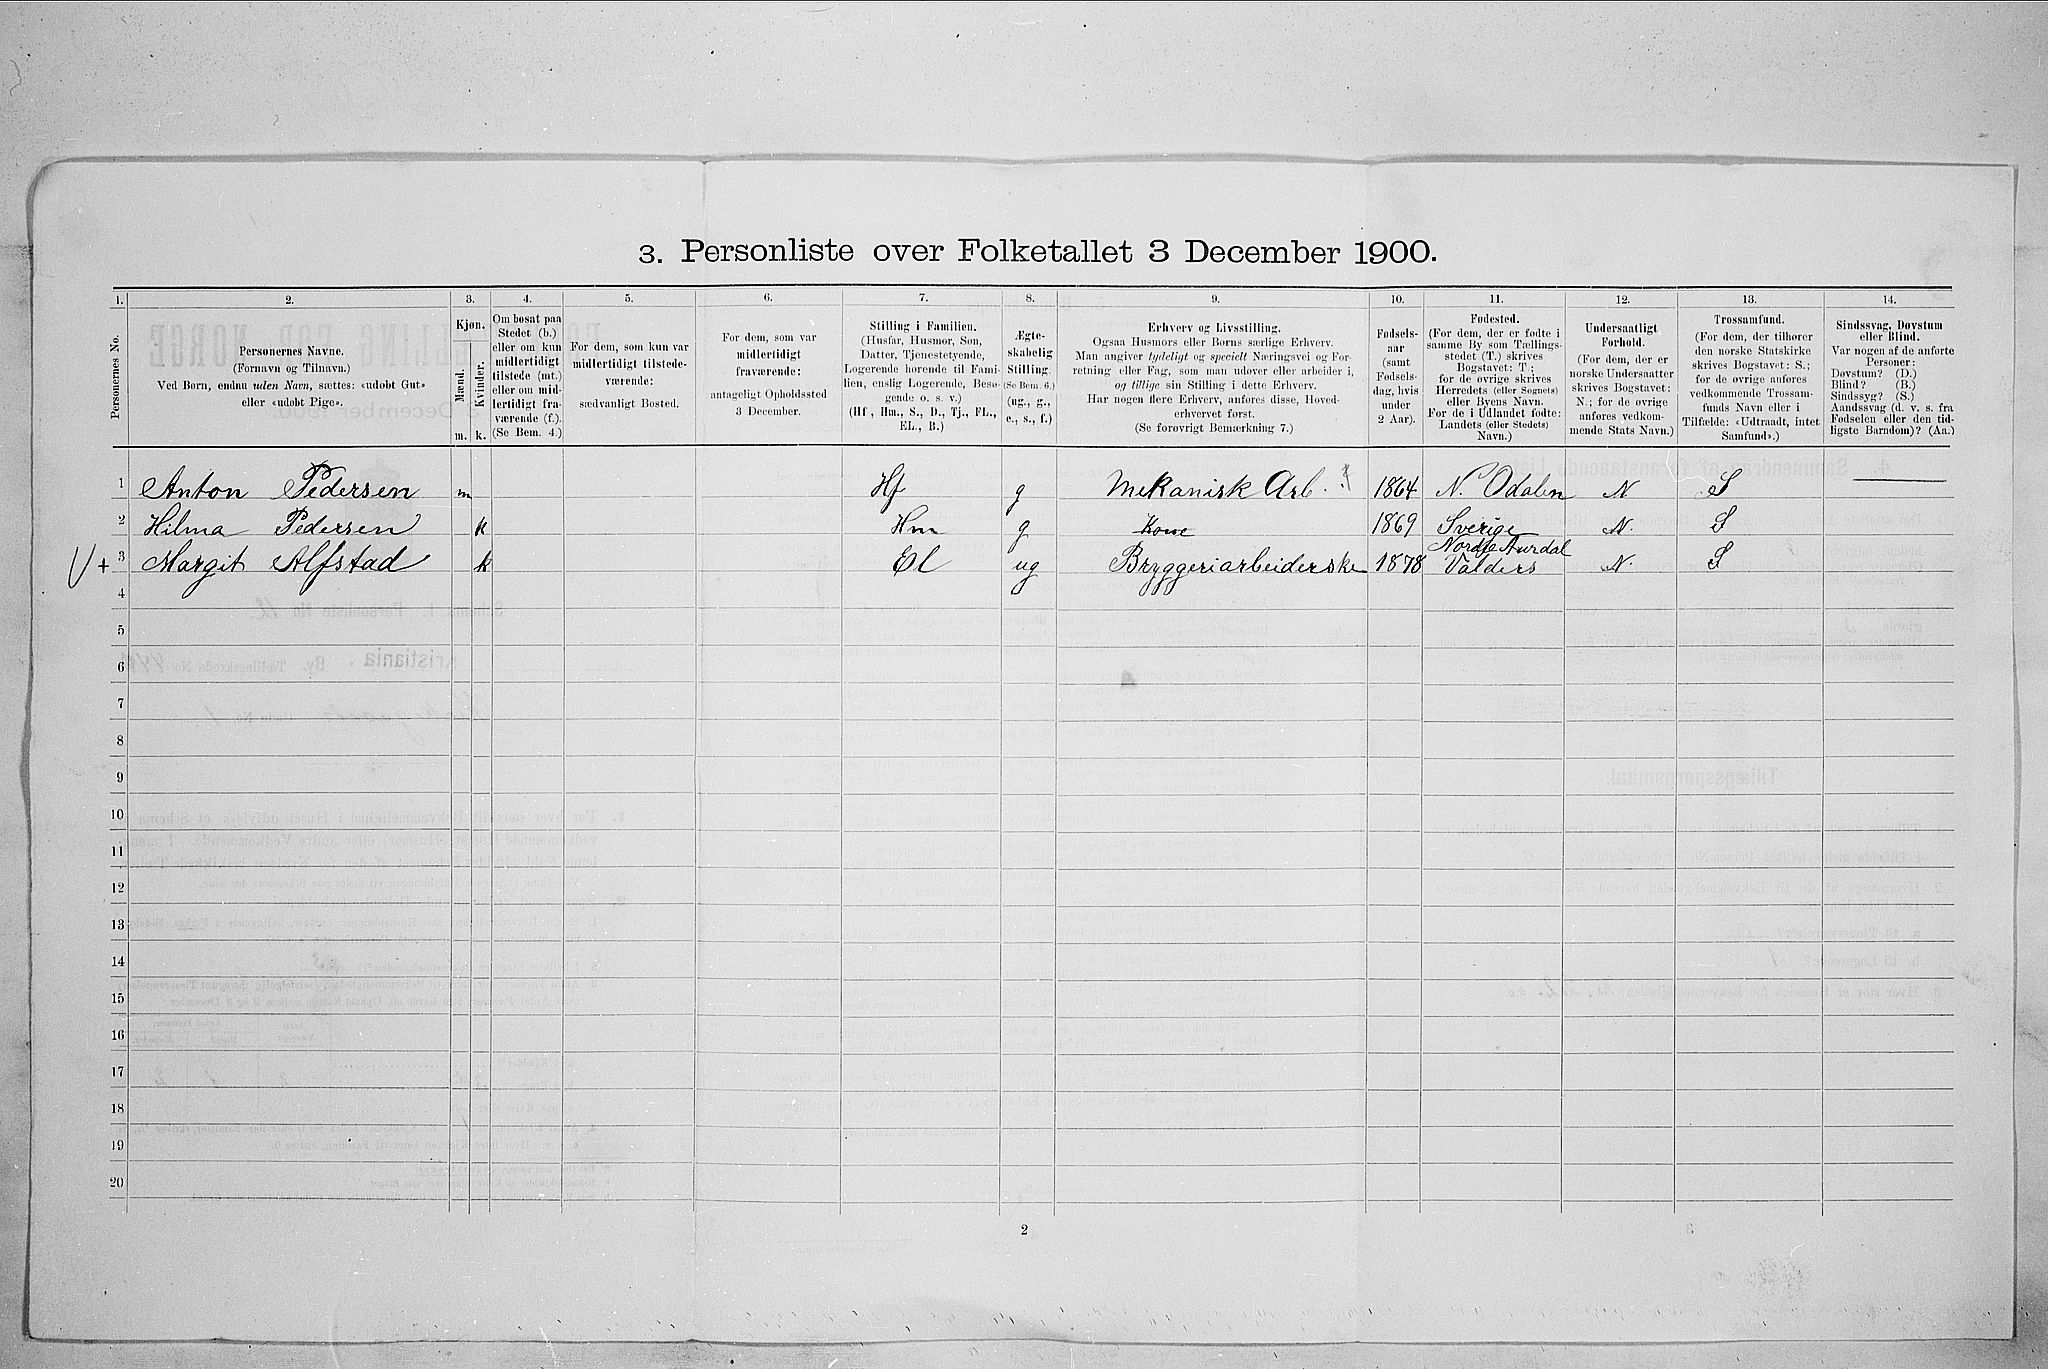 3. Personliste over Folketallet 3 December 1900.
1. 2. 3. 4. 5. 6. 7. 8. 9. 10. 11. 12. 13. 14.
Personernes No.
Personernes Navne.
(Fornavn og Tilnavn.)
Ved Børn, endnu uden Navn, sættes: «udøbt Gut»
eller «udøbt Pige».
Kjøn.
Mænd.
Kvinder.
m. k.
Om bosat paa
Stedet (b.)
eller om kun
midlertidigt
tilstede (mt.)
eller om mid-
lertidigt fra-
værende (f.).
(Se Bem. 4.)
For dem, som kun var
midlertidigt tilstede-
værende:
sædvanligt Bosted.
For dem, som var
midlertidigt
fraværende:
antageligt Opholdssted
3 December.
Stilling i Familien.
(Husfar, Husmor, Søn,
Datter, Tjenestetyende,
Logerende hørende til Fami-
lien, enslig Logerende, Besø-
gende o. s. v.)
(Hf., Hm., S., D., Tj., FL.,
EL., B.)
Ægte-
skabelig
Stilling.
(Se Bem. 6.)
(ug., g.,
e., s., f.)
Erhverv og Livsstilling.
Ogsaa Husmors eller Børns særlige Erhverv.
Man angiver tydeligt og specielt Næringsvei og For-
retning eller Fag, som man udøver eller arbeider i,
og tillige sin Stilling i dette Erhverv.
Har nogen flere Erhverv, anføres disse, Hoved-
erhvervet først.
(Se forøvrigt Bemærkning 7.)
Fødsels-
aar
(samt
Fødsels-
dag, hvis
under
2 Aar).
Fødested.
(For dem, der er fødte i
samme By som Tællings-
stedet (T.) skrives
Bogstavet: T.;
for de øvrige skrives
Herredets (eller Sognets)
eller Byens Navn.
For de i Udlandet fødte:
Landets (eller Stedets)
Navn.)
Undersaatligt
Forhold.
(For dem, der er
norske Undersaatter
skrives Bogstavet:
N.; for de øvrige
anføres vedkom-
mende Stats Navn.)
Trossamfund.
(For dem, der tilhører
den norske Statskirke
skrives Bogstavet: S.;
for de øvrige anføres
vedkommende Trossam-
funds Navn eller i
Tilfælde: «Udtraadt, intet
Samfund».)
Sindssvag, Døvstum
eller Blind.
Var nogen af de anførte
Personer:
Døvstum? (D.)
Blind? (B.)
Sindssyg? (S.)
Aandssvag (d. v. s. fra
Fødselen eller den tid-
ligste Barndom)? (Aa.)
1 Anton Pedersen m Hf g Mekanisk Arb. 1864 N. Odalen N S
2 Hilma Pedersen k Hm g Kone 1869 Sverige N. S
V + 3 Margit Alfstad k El ug Bryggeriarbeiderske 1878 Nordre Aurdal Valders N. S
4
5
6
7
8
9
10
11
12
13
14
15
16
17
18
19
20
2